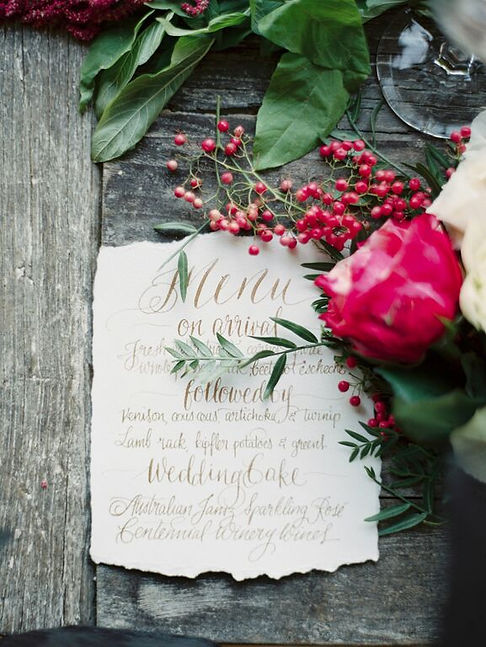 Menu
on arrival
Fresh
beetroot
followed by
Venison, couscous, artichoke & turnip
Lamb rack, kipfler potatoes & greens
Wedding Cake
Australian Jansz Sparkling Rosé
Centennial Winery Wines